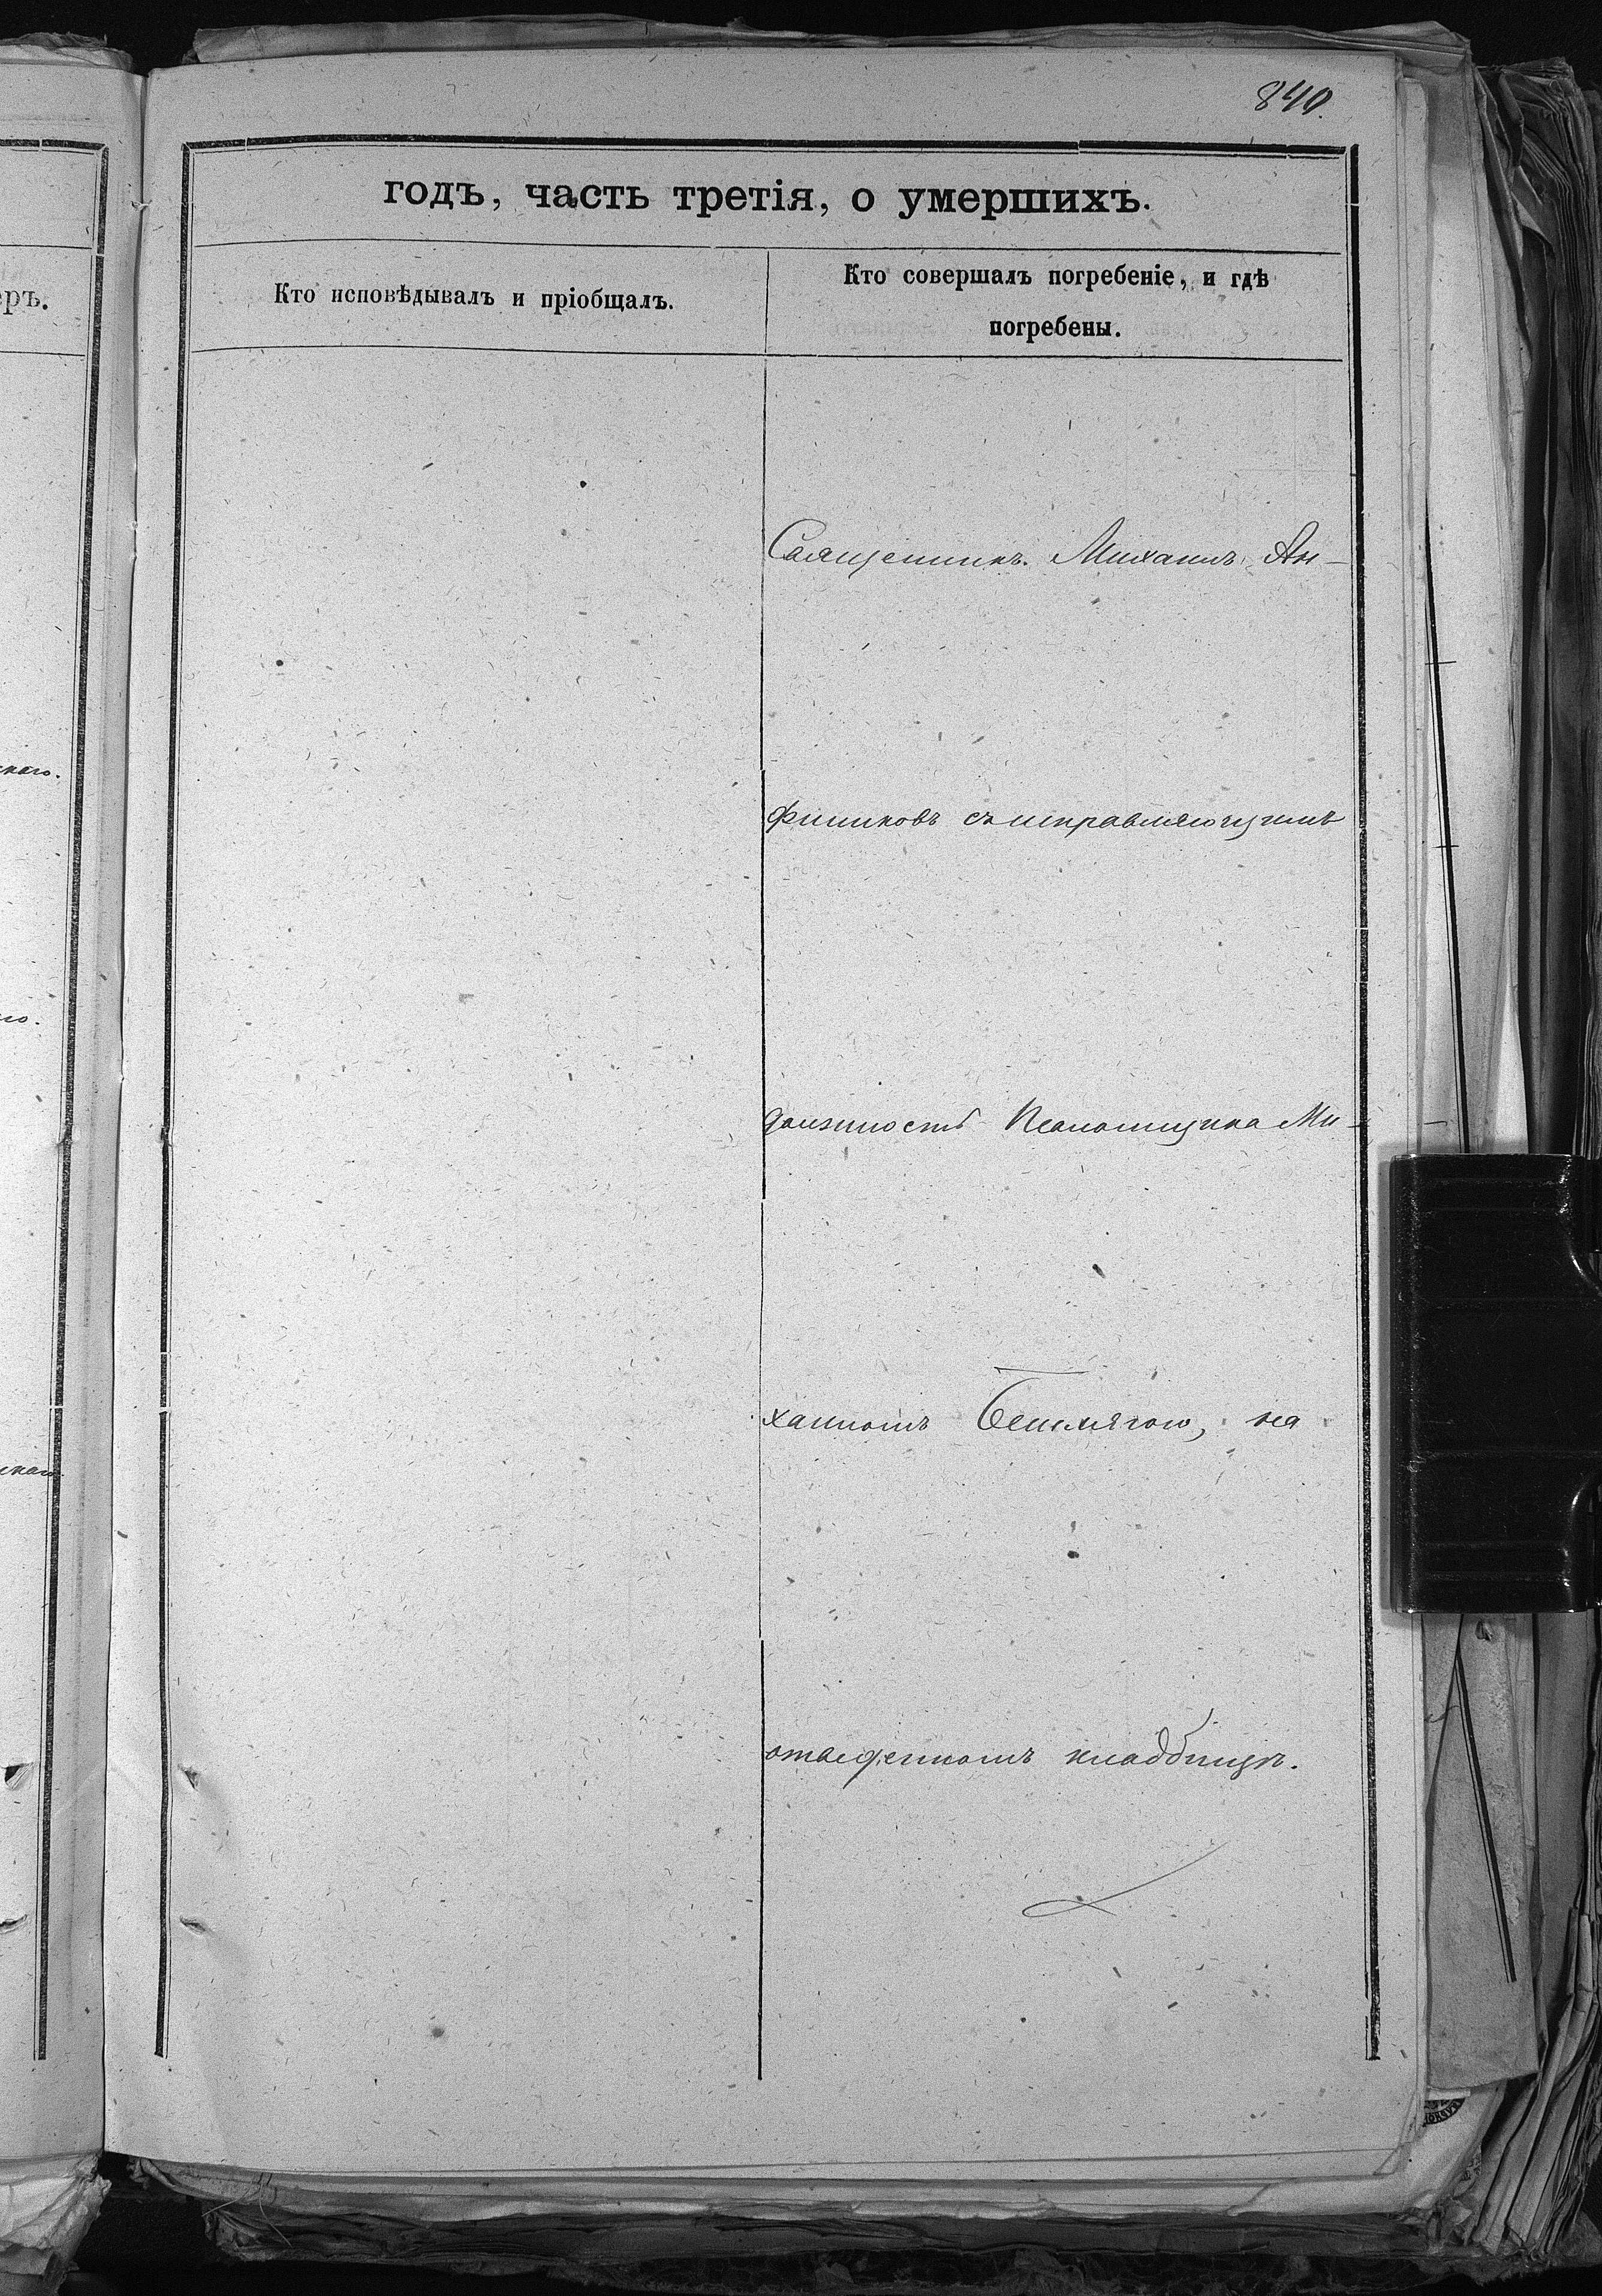 840.
годъ, часть третія, о умершихъ.
Кто исповѣдывалъ и пріобщалъ.
Кто совершалъ погребеніе, и гдѣ
погребены.
еръ.
Священникъ Михаилъ Ан-
фимовъ съ исправляющимъ
должность Псаломщика Ми-
хаиломъ на
отведенномъ кладбищѣ.